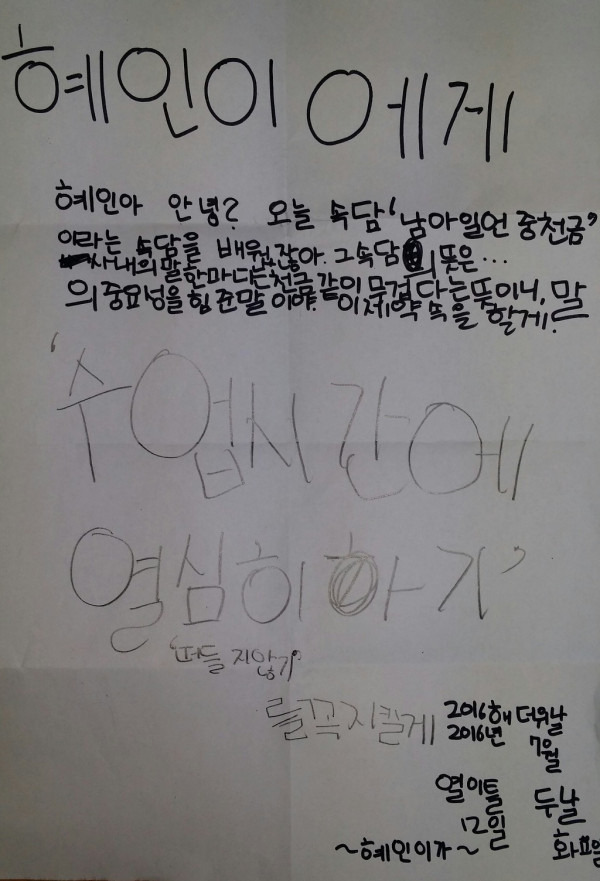 혜인이에게
혜인아 안녕? 오늘 속담 '남아일언 중천금'
이라는 속담을 배웠잖아. 그 속담의 뜻은...
사내의 말 한마디는 천금같이 무겁다는 뜻이니, 말
의 중요성을 힘 준 말이야. 이제 약속을 할게.
'수업시간에
열심히 하기'
'떠들지않기'
를 꼭 지킬게
2016해 더위날
2016년 7월
열이틀 두날
12일 화요일
~혜인이가~